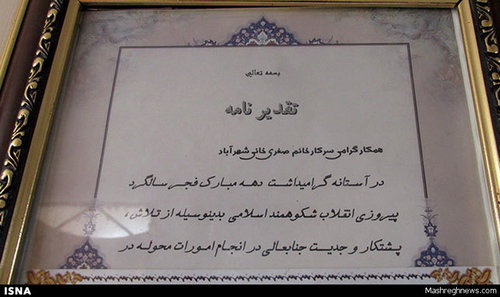 بسمه تعالی
تقدیر نامه
همکار گرامی سرکار خانم صغری خانی شهرآباد
در آستانه گرامیداشت دهه مبارک فجر سالگرد
پیروزی انقلاب شکوهمند اسلامی بدینوسیله از تلاش ،
پشتکار و جدیت جنابعالی در انجام امورات محوله در
ISNA
Mashreghnews.com